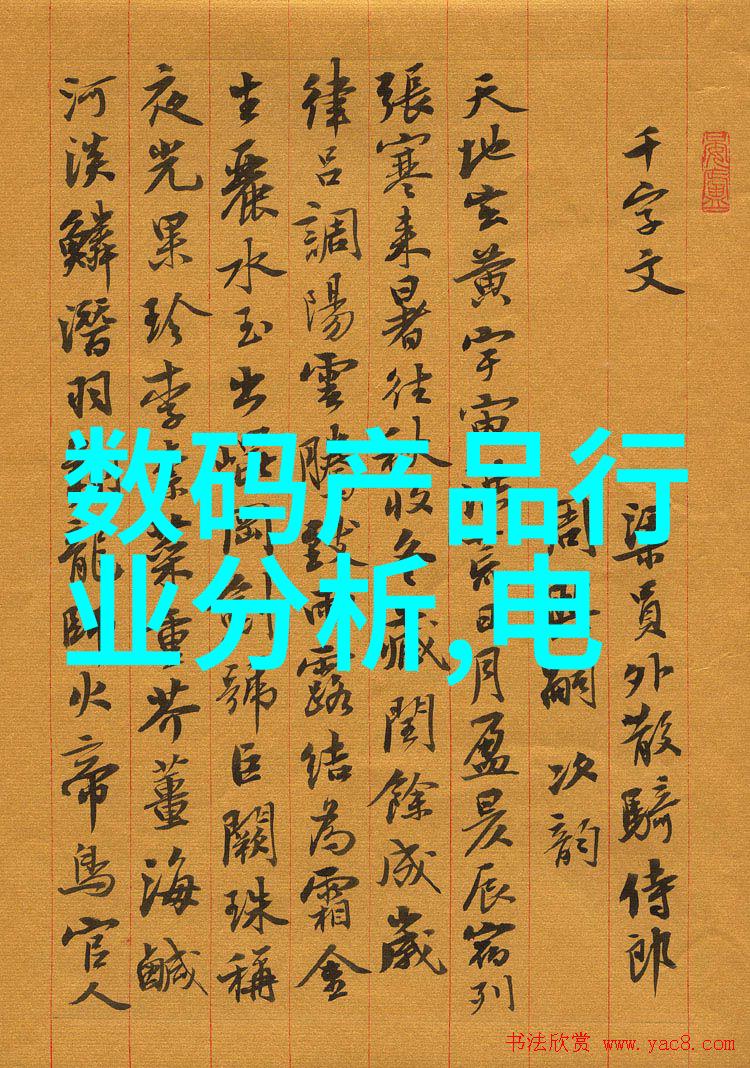 数码产品行
业分析,电
千字文
梁員外散騎侍郎
周嗣次韵
天地玄黄宇宙洪荒日月盈昃辰宿列
張寒来暑往秋收冬藏閏餘成歲
律吕調陽雲騰致雨露结為霜金
生麗水玉出崐岡劍號巨闕珠稱
夜光果珍李柰菜重芥薑海鹹
河淡鱗潛羽翔龍師火帝鳥官人
书法欣赏 www.yac8.com